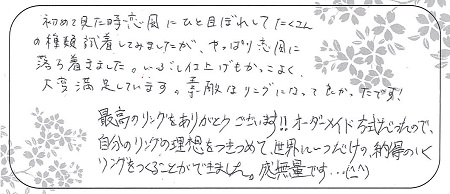 初めて見た時恋風にひと目ぼれして たくさん
の種類試着してみましたが、やっぱり恋風に
落ち着きました。いぶし仕上げもかっこよく、
大変満足しています。素敵なリングになってよかったです!
最高のリングをありがとうございます!! オーダーメイド方式だったので、
自分のリングの理想をつきつめて、世界に一つだけの、納得のいく
リングをつくることができました。感無量です…(^^)